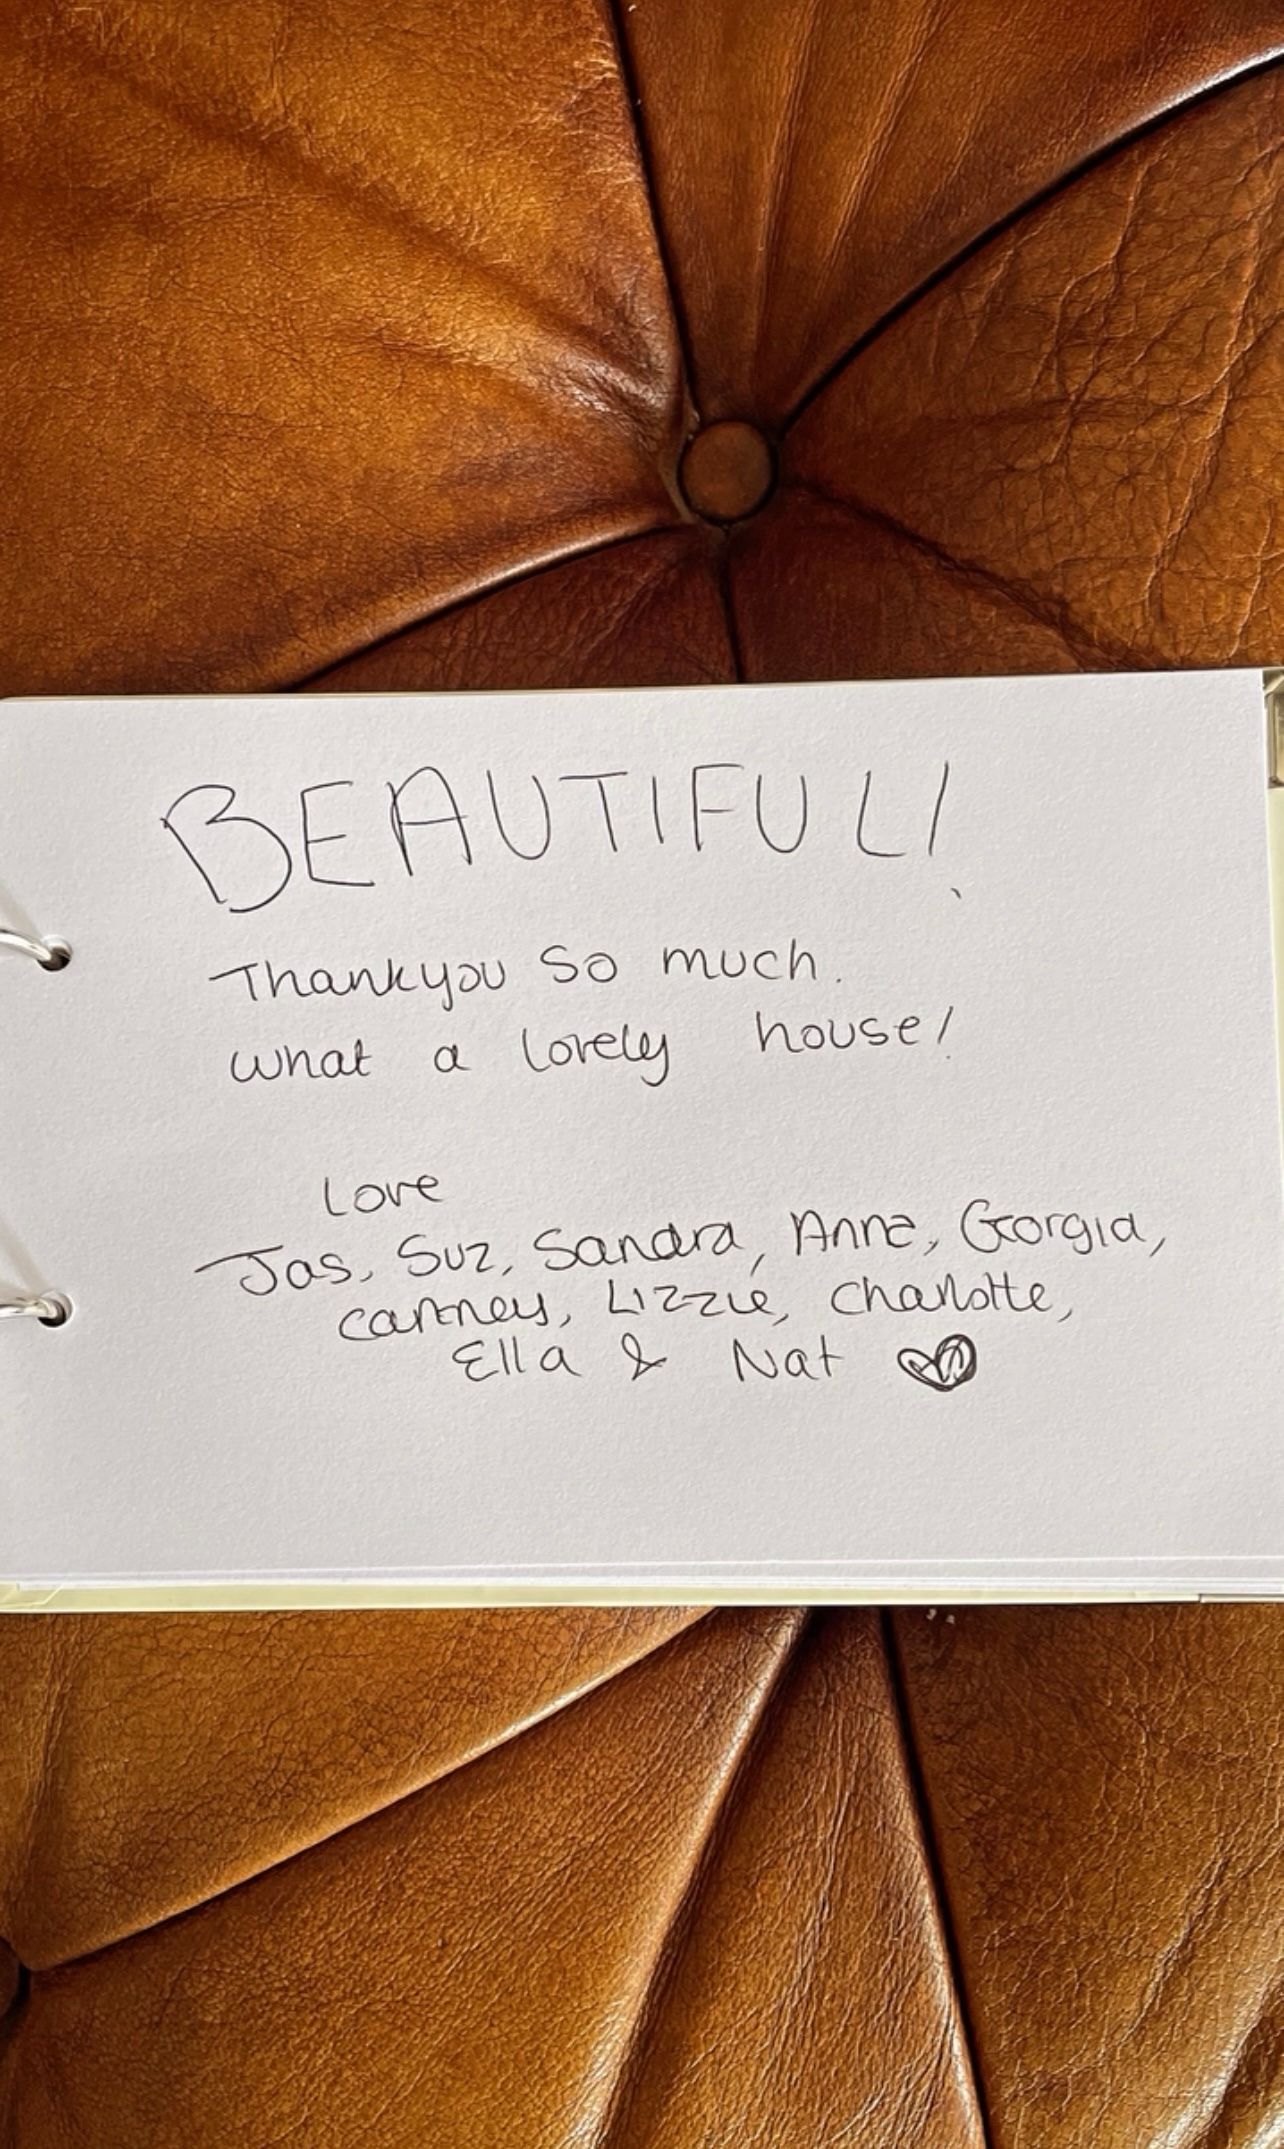 BEAUTIFUL!
Thankyou so much.
what a lovely house!
Love
Jas, Suz, Sandra, Anna, Georgia,
Lizzie, Charlotte,
Ella & Nat